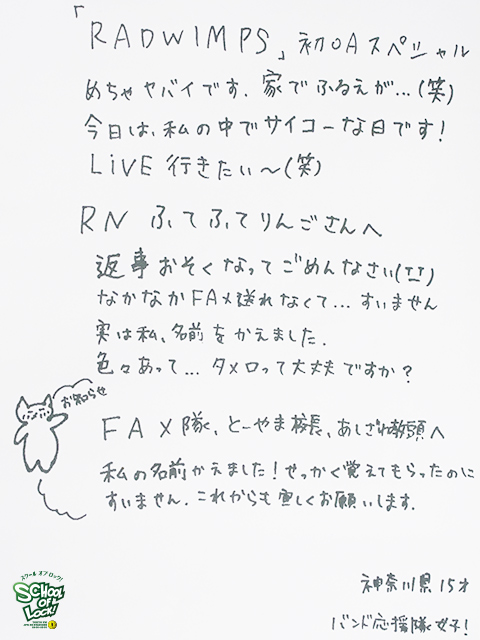 「RADWIMPS」初OAスペシャル
めちゃヤバイです. 家でふるえが…(笑)
今日は、私の中でサイコーな日です!
LiVE 行きたい〜(笑)
RN ふてふてりんごさんへ
返事おそくなってごめんなさい(TT)
なかなかFAX送れなくて…すいません
実は私、名前をかえました.
色々あって…タメロって大丈夫ですか?
お知らせ
FAX隊、とーやま校長、あしざわ教頭へ
私の名前かえました!せっかく覚えてもらったのに
すいません. これからも宜しくお願いします.
スクール オブ ロック!
SCHOOL OF LOCK!
神奈川県 15才
バンド応援隊女子!